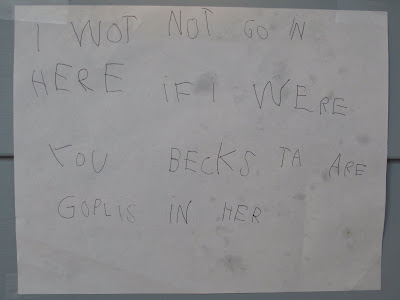 I WOT NOT GO IN
HERE iF I WERE
YOU BECKS TA ARE
GOPLIS iN HER